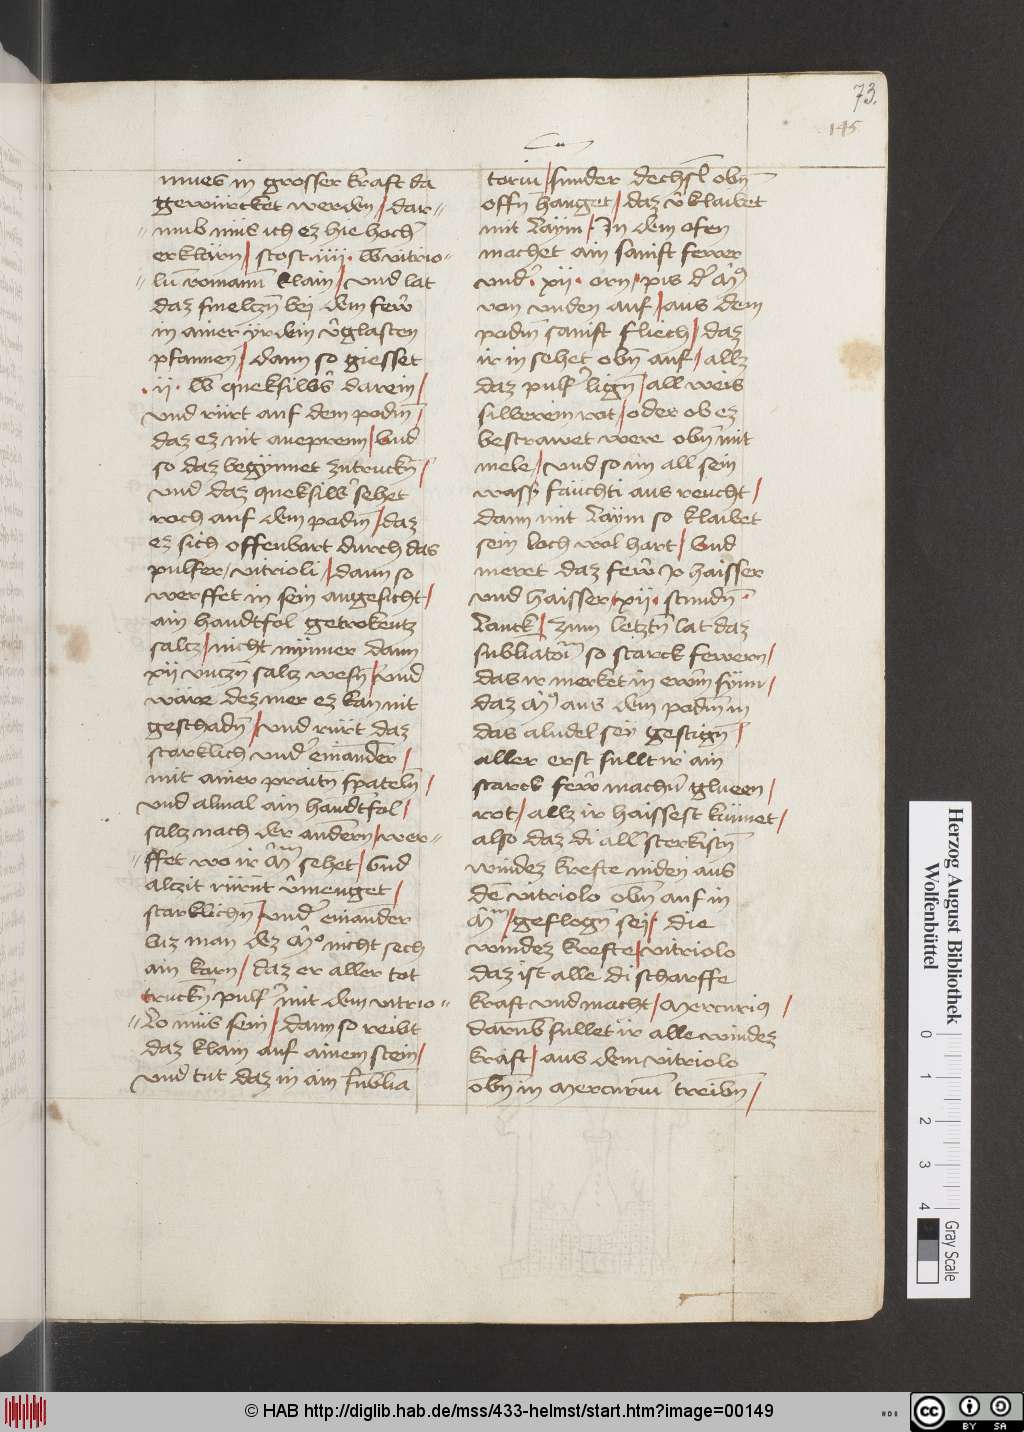 73.
145
mues in grosser kraft da
gewürcket werden / dar=
=umb mus ich ez hie hoch
erklärn / stost iiii · lb vitrio=
=lū romanū klain / vnd lat
daz smelczn̄ bej dem few̄r
in ainer yrdein v̄glasten
pfannen / dann so giesset
· ii · lb queksilb̄s darein /
vnd rürt auf dem podm̄ /
daz ez nit aneprenn / Vnd
so daz begynnet zutruckn̄ /
vnd daz queksilb̄ sehet
roch auf dem podm̄ / daz
ez sich offenbart durch das
pulfer / vitrioli / dann so
werffet in sein angesicht /
ain handtfol getrokentz
saltz / nicht mynner dann
xii vnczn̄ salcz wesn̄ / vnd
wäre dez mer ez kan nit
geschadn̄ / vnd rürt daz
starklich vnd̄ einander /
mit ainer praitn̄ spateln̄ /
vnd almal ain handtfol /
saltz nach der andern / wer=
=ffet wo ir m̄ sehet / Vnd
alczit rürn̄t v̄menget /
starklichn̄ / vnd̄ einander
biz man dez nicht sech
ain korn / daz er aller tot
truckn̄ pulf̄ mit dem vitrio=
=lo müs sein / dann so reibt
daz klain auf ainem stein /
vnd tut daz in ain sublia
toriū / sunder dechsl̄ obn̄
offn̄ hanget / daz v̄klaibet
mit laÿm / In dem ofen
machet ain sanift fewer
vnd̄ · xii · orn / pis d̄
von vnden auf / aus dem
podm̄ sanift fliech / daz
ir in sehet obn̄ auf / allz
daz pulf̄ lign̄ / all weis
silberein rot / oder ob ez
bestrawet were obn̄ mit
mele / vnd so im all sein
wasß fäuchti aus reucht /
dann mit laÿm so klaibet
sein loch wol hart / Vnd
meret daz few̄r ÿe haisser
vnd haisser / xii · stundn̄ ·
lanck / zum letztn̄ lat daz
subliatoriū so starck fewern /
das ir merket in ewrm synn /
daz aus dem podm̄ in
das aludel sey gestign̄ /
aller erst fullt ir ain
starck few̄r machn̄ glueen /
rot / allz ir haissest kumet /
also daz di all sterkistn̄
windez krefte niden aus
dē vitriolo obn̄ auf in
/ geflogn̄ sej / die
windez krefte / vitriolo
daz ist alle di scharffe
kraft vnd macht / Mercurius /
darub̄ sullet ir alle windez
kraft / aus dem vitriolo
obn̄ in Mercuriū treibn̄ /
Herzog August Bibliothek
Wolfenbüttel
0 1 2 3 4
Gray Scale
© HAB http://diglib.hab.de/mss/433-helmst/start.htm?image=00149
cc BY SA